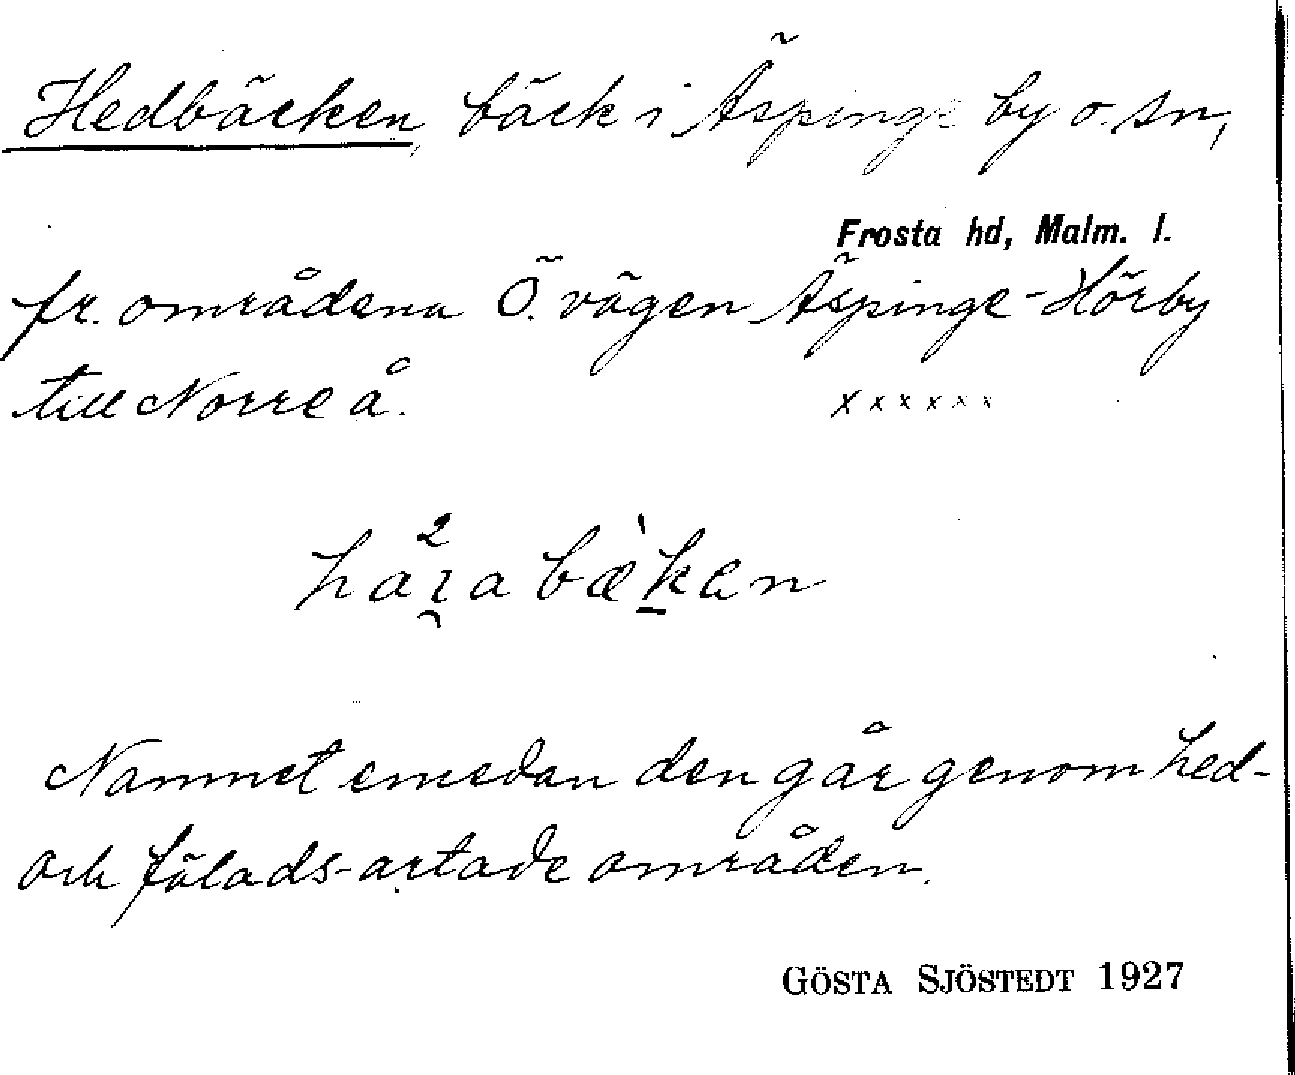 Hedbäcken, bäck i Äspinge by o. sn,
Frosta hd, Malm. l.
fr. områdena Ö. vägen Äspinge-Hörby
till Norre å.
x x x x x x
Namnet emedan den går genom hed-
och fälads-artade områden.
GÖSTA SJÖSTEDT 1927